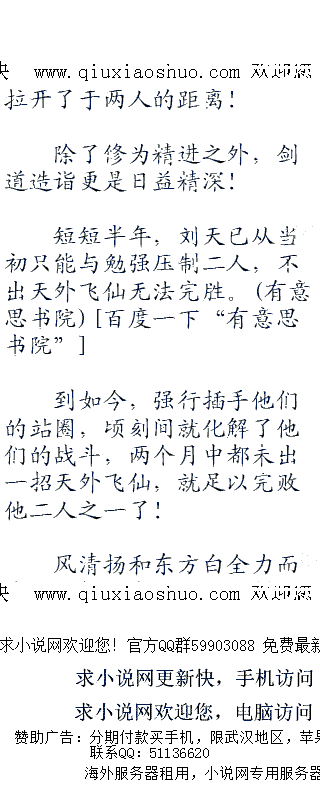 快 www.qiuxiaoshuo.com 欢迎您
拉开了于两人的距离！
除了修为精进之外，剑
道造诣更是日益精深！
短短半年，刘天已从当
初只能与勉强压制二人，不
出天外飞仙无法完胜。(有意
思书院) [百度一下“有意思
书院”]
到如今，强行插手他们
的站圈，顷刻间就化解了他
们的战斗，两个月中都未出
一招天外飞仙，就足以完败
他二人之一了！
风清扬和东方白全力而
快 www.qiuxiaoshuo.com 欢迎您
求小说网欢迎您！官方QQ群59903088 免费最新
求小说网更新快，手机访问
求小说网欢迎您，电脑访问
赞助广告：分期付款买手机，限武汉地区，苹果
联系QQ：51136620
海外服务器租用，小说网专用服务器